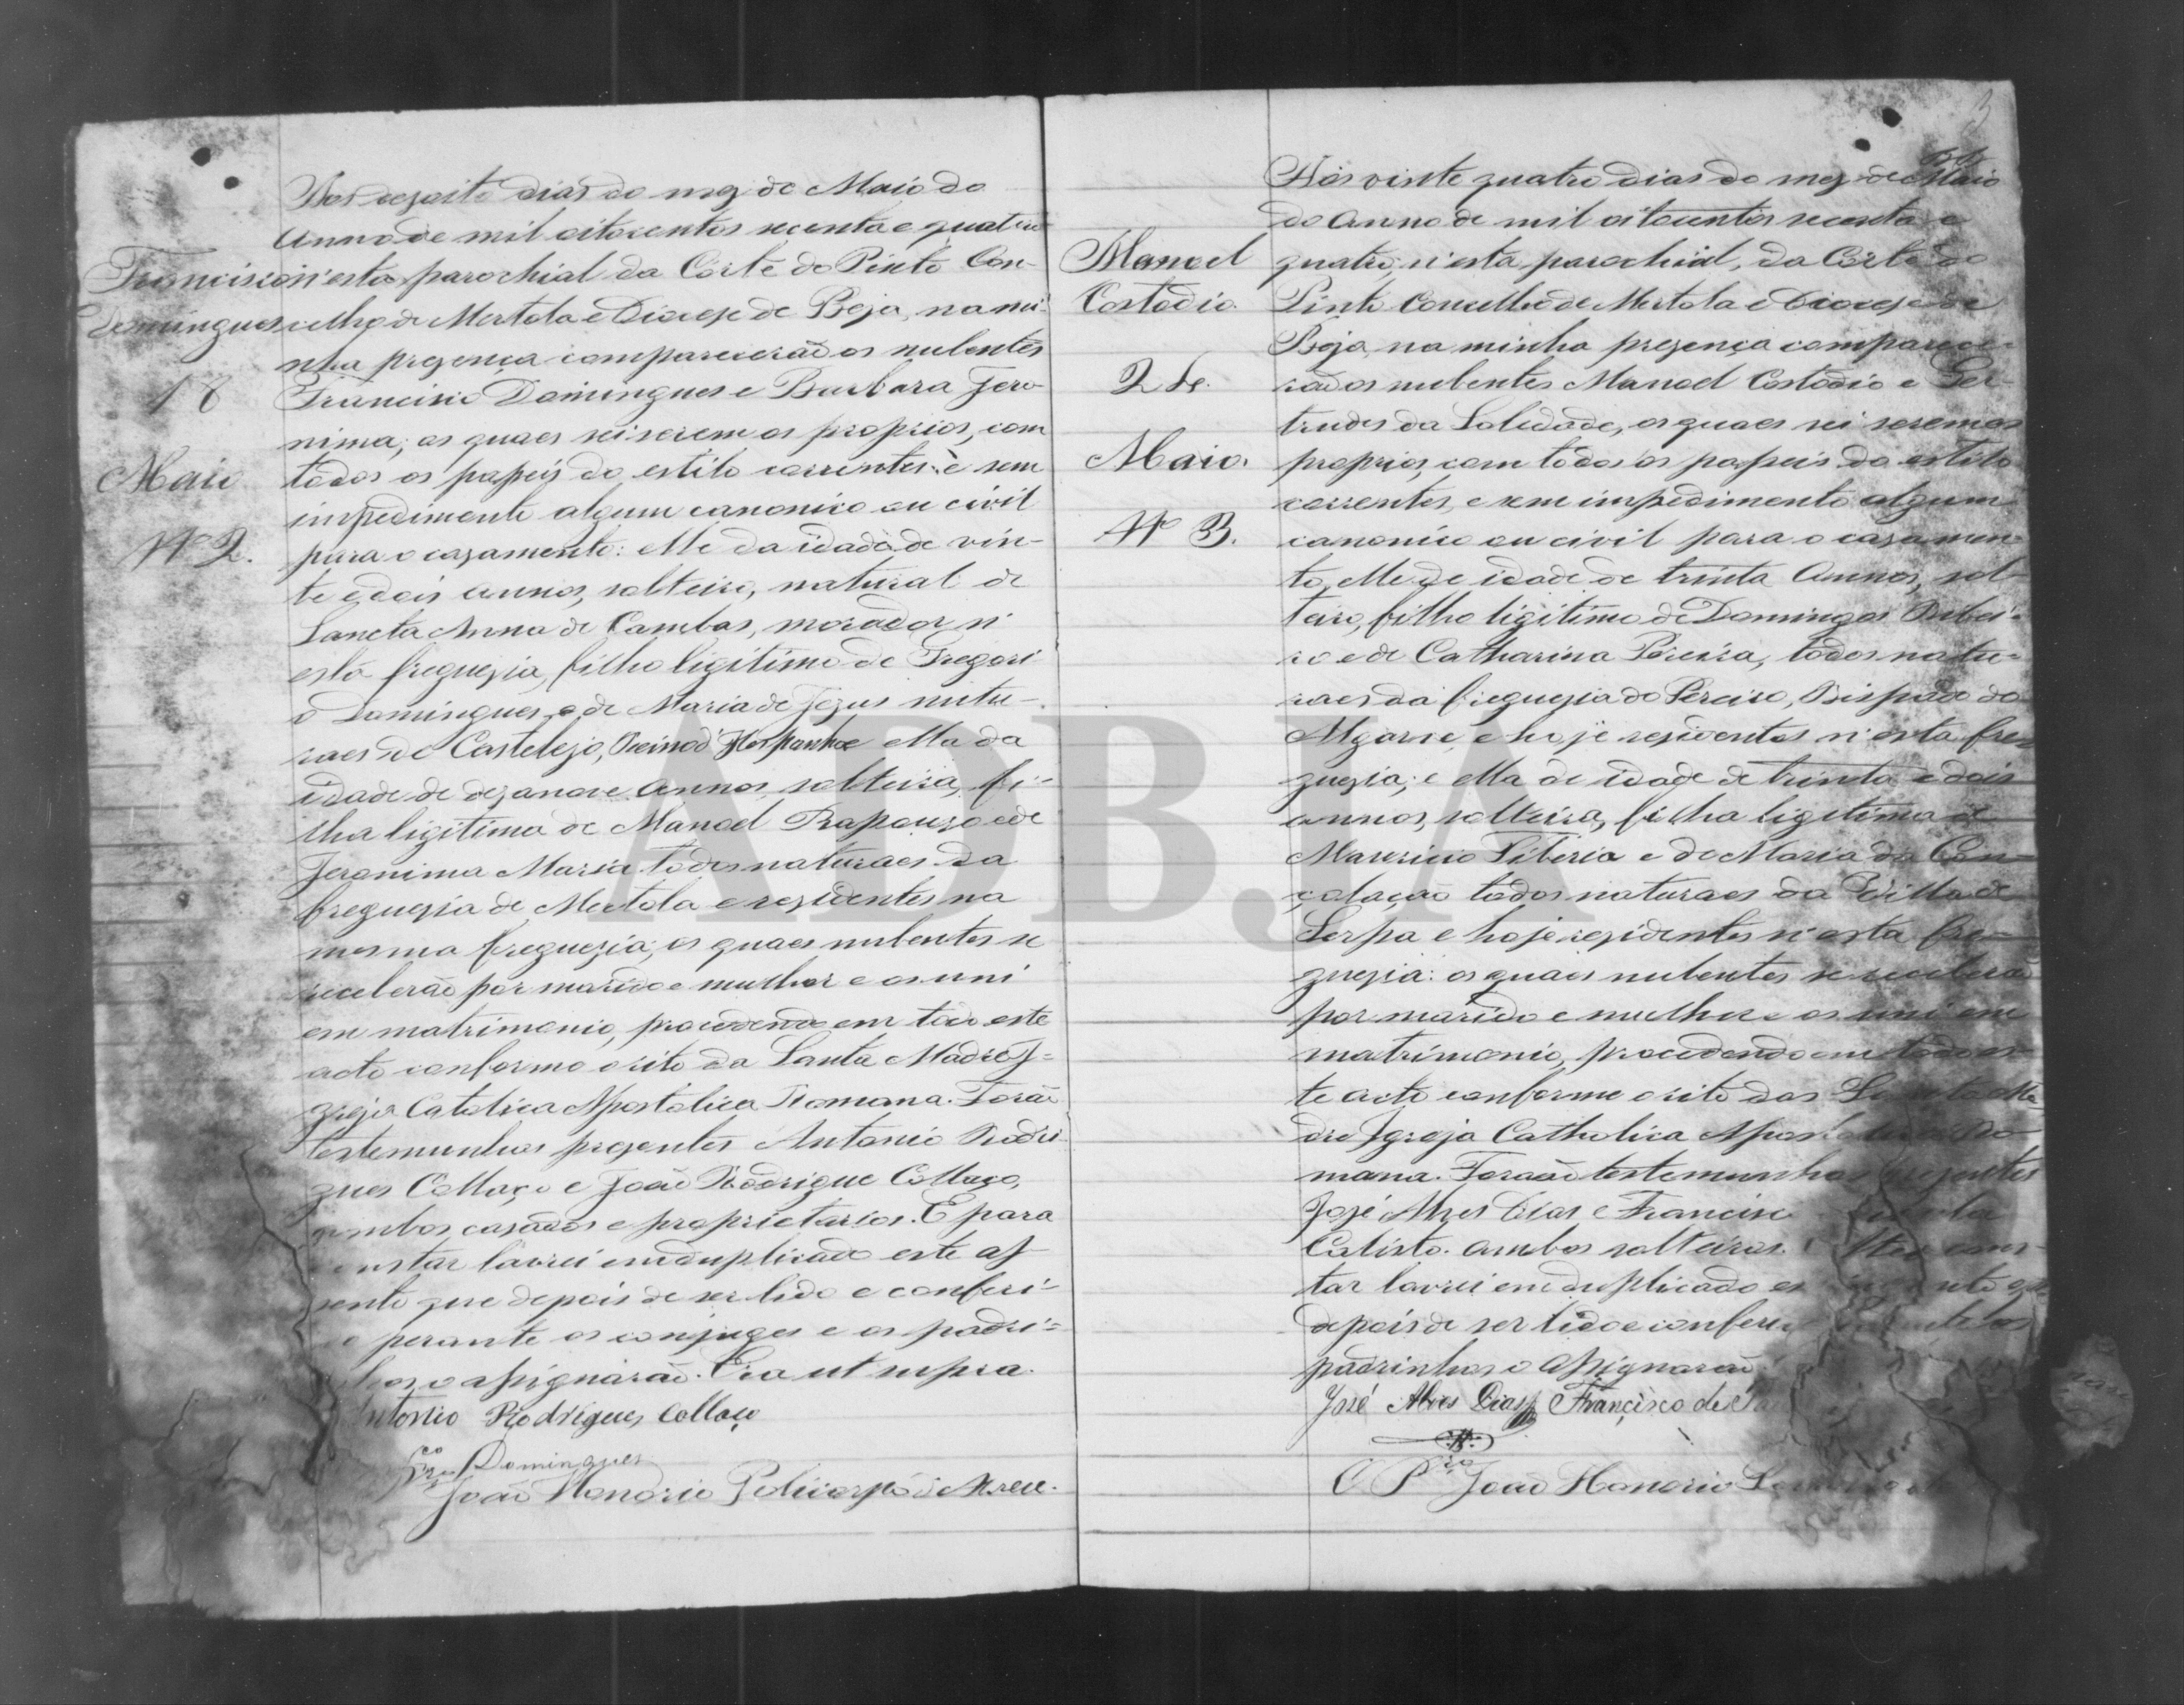 Francisco
Domingues
18
Maio
Nº 2.
Aos dezoito dias do mez de Maio do
anno de mil oitocentos secenta e quatro
n'esta parochial da Côrte do Pinto Con-
celho de Mertola e Diocese de Beja, na mi-
nha prezença comparecerão os nubentes
Francisco Domingues e Barbara Jero-
nima, os quaes sei serem os proprios, com
todos os papeis do estilo correntes e sem
impedimento algum canonico ou civil
para o cazamento: elle da idade de vin-
te e dois annos, solteiro, natural de
Sancta Anna de Cambas, morador n'
esta freguezia, filho ligitimo de Gregori
o Domingues e de Maria de Jezus natu-
raes de Castelejo, Reino d'Hespanha e ella da
idade de dezanove annos solteira, fi-
lha ligitima de Manoel Rapouzo e de
Jeronima Maria todos naturaes da
freguezia de Mertola e rezidentes na
mesma freguezia, os quaes nubentes se
receberão por marido e mulher e os uni
em matrimonio, procedendo em todo este
acto conforme o rito da Santa Madre I-
greja Catolica Apostolica Romana. Forão
testemunhas prezentes Antonio Rodri
gues Collaço e João Rodrigue Collaço,
ambos cazados e proprietarios. E para
constar lavrei em duplicado este as
sento que depois de ser lido e conferi-
perante os conjuges e os padri-
o assignarão. Era ut supra.
Antonio Rodrigues Collaço
Frco Domingues
João Honorio Policarpo d'Abreu.
3
Manoel
Costodio
24.
Maio.
Nº 3.
Aos vinte quatro dias do mez de Maio
do anno de mil oitocentos secenta e
quatro, n'esta parochial, da Côrte do
Pinto Concelho de Mertola e Diocese de
Beja, na minha prezença comparece-
rão os nubentes Manoel Costodio e Ger-
trudes da Soledade, os quaes sei serem os
proprios, com todos os papeis do estilo
correntes, e sem impedimento algum
canonico ou civil para o cazamen-
to, elle de idade de trinta annos, sol-
teiro, filho ligitimo de Domingos Ribei-
ro e de Catharina Pereira, todos natu-
raes da freguezia do Pereiro, Bispado do
Algarve, e hoje rezidentes n'esta fre-
guezia; e ella de idade de trinta e dois
annos, solteira, filha ligitima de
Mauricio Tiberia e de Maria da Con-
çolação todos naturaes da Villa de
Serpa e hoje rezidentes n'esta fre-
guezia: os quaes nubentes se receberão
por marido e mulher e os uni em
matrimonio, procedendo em todo es-
te acto conforme o rito das Santa Ma-
dre Igreja Catholica Apostolica Ro-
mana. Forão testemunhas prezentes
José Alves Dias e Francisco
Calisto. ambos solteiros. cons-
tar lavrei em duplicado
depois de ser lido e conferi
padrinhos o assignarão
José Alves Dias Francisco de
O Pe João Honorio
ADBJA